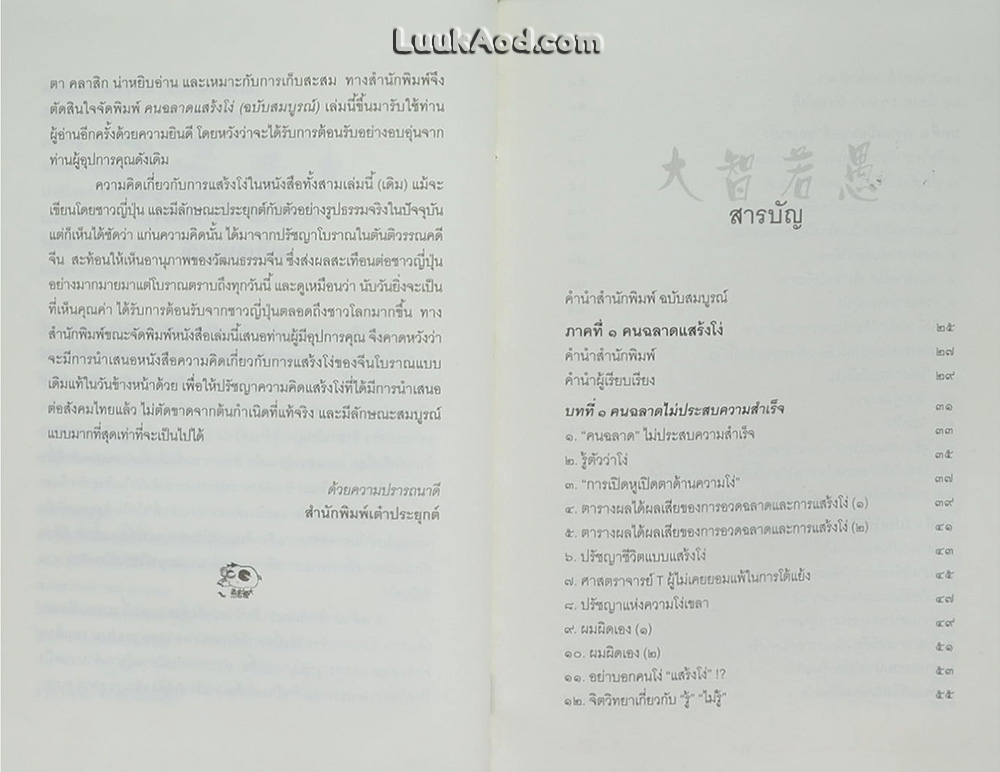 LuukAod.com
ตา คลาสิก น่าหยิบอ่าน และเหมาะกับการเก็บสะสม ทางสำนักพิมพ์จึง
ตัดสินใจจัดพิมพ์ คนฉลาดแสร้งโง่ (ฉบับสมบูรณ์) เล่มนี้ขึ้นมารับใช้ท่าน
ผู้อ่านอีกครั้งด้วยความยินดี โดยหวังว่าจะได้รับการต้อนรับอย่างอบอุ่นจาก
ท่านผู้อุปการคุณดังเดิม
ความคิดเกี่ยวกับการแสร้งโง่ในหนังสือทั้งสามเล่มนี้ (เดิม) แม้จะ
เขียนโดยชาวญี่ปุ่น และมีลักษณะประยุกต์กับตัวอย่างรูปธรรมจริงในปัจจุบัน
แต่ก็เห็นได้ชัดว่า แก่นความคิดนั้น ได้มาจากปรัชญาโบราณในตันติวรรณคดี
จีน สะท้อนให้เห็นอานุภาพของวัฒนธรรมจีน ซึ่งส่งผลสะเทือนต่อชาวญี่ปุ่น
อย่างมากมายมาแต่โบราณตราบถึงทุกวันนี้ และดูเหมือนว่า นับวันยิ่งจะเป็น
ที่เห็นคุณค่า ได้รับการต้อนรับจากชาวญี่ปุ่นตลอดถึงชาวโลกมากขึ้น ทาง
สำนักพิมพ์ขณะจัดพิมพ์หนังสือเล่มนี้เสนอท่านผู้มีอุปการคุณ จึงคาดหวังว่า
จะมีการนำเสนอหนังสือความคิดเกี่ยวกับการแสร้งโง่ของจีนโบราณแบบ
เดิมแท้ในวันข้างหน้าด้วย เพื่อให้ปรัชญาความคิดแสร้งโง่ที่ได้มีการนำเสนอ
ต่อสังคมไทยแล้ว ไม่ตัดขาดจากต้นกำเนิดที่แท้จริง และมีลักษณะสมบูรณ์
แบบมากที่สุดเท่าที่จะเป็นไปได้
ด้วยความปรารถนาดี
สำนักพิมพ์เต๋าประยุกต์
大智若愚
สารบัญ
คำนำสำนักพิมพ์ ฉบับสมบูรณ์
ภาคที่ ๑ คนฉลาดแสร้งโง่ ๒๕
คำนำสำนักพิมพ์ ๒๗
คำนำผู้เรียบเรียง ๒๙
บทที่ ๑ คนฉลาดไม่ประสบความสำเร็จ ๓๑
๑. "คนฉลาด" ไม่ประสบความสำเร็จ ๓๓
๒. รู้ตัวว่าโง่ ๓๕
๓. "การเปิดหูเปิดตาด้านความโง่" ๓๗
๔. ตารางผลได้ผลเสียของการอวดฉลาดและการแสร้งโง่ (๑) ๓๙
๕. ตารางผลได้ผลเสียของการอวดฉลาดและการแสร้งโง่ (๒) ๔๑
๖. ปรัชญาชีวิตแบบแสร้งโง่ ๔๓
๗. ศาสตราจารย์ T ผู้ไม่เคยยอมแพ้ในการโต้แย้ง ๔๕
๘. ปรัชญาแห่งความโง่เขลา ๔๗
๙. ผมผิดเอง (๑) ๔๙
๑๐. ผมผิดเอง (๒) ๕๑
๑๑. อย่าบอกคนโง่ "แสร้งโง่" !? ๕๓
๑๒. จิตวิทยาเกี่ยวกับ "รู้" "ไม่รู้" ๕๕